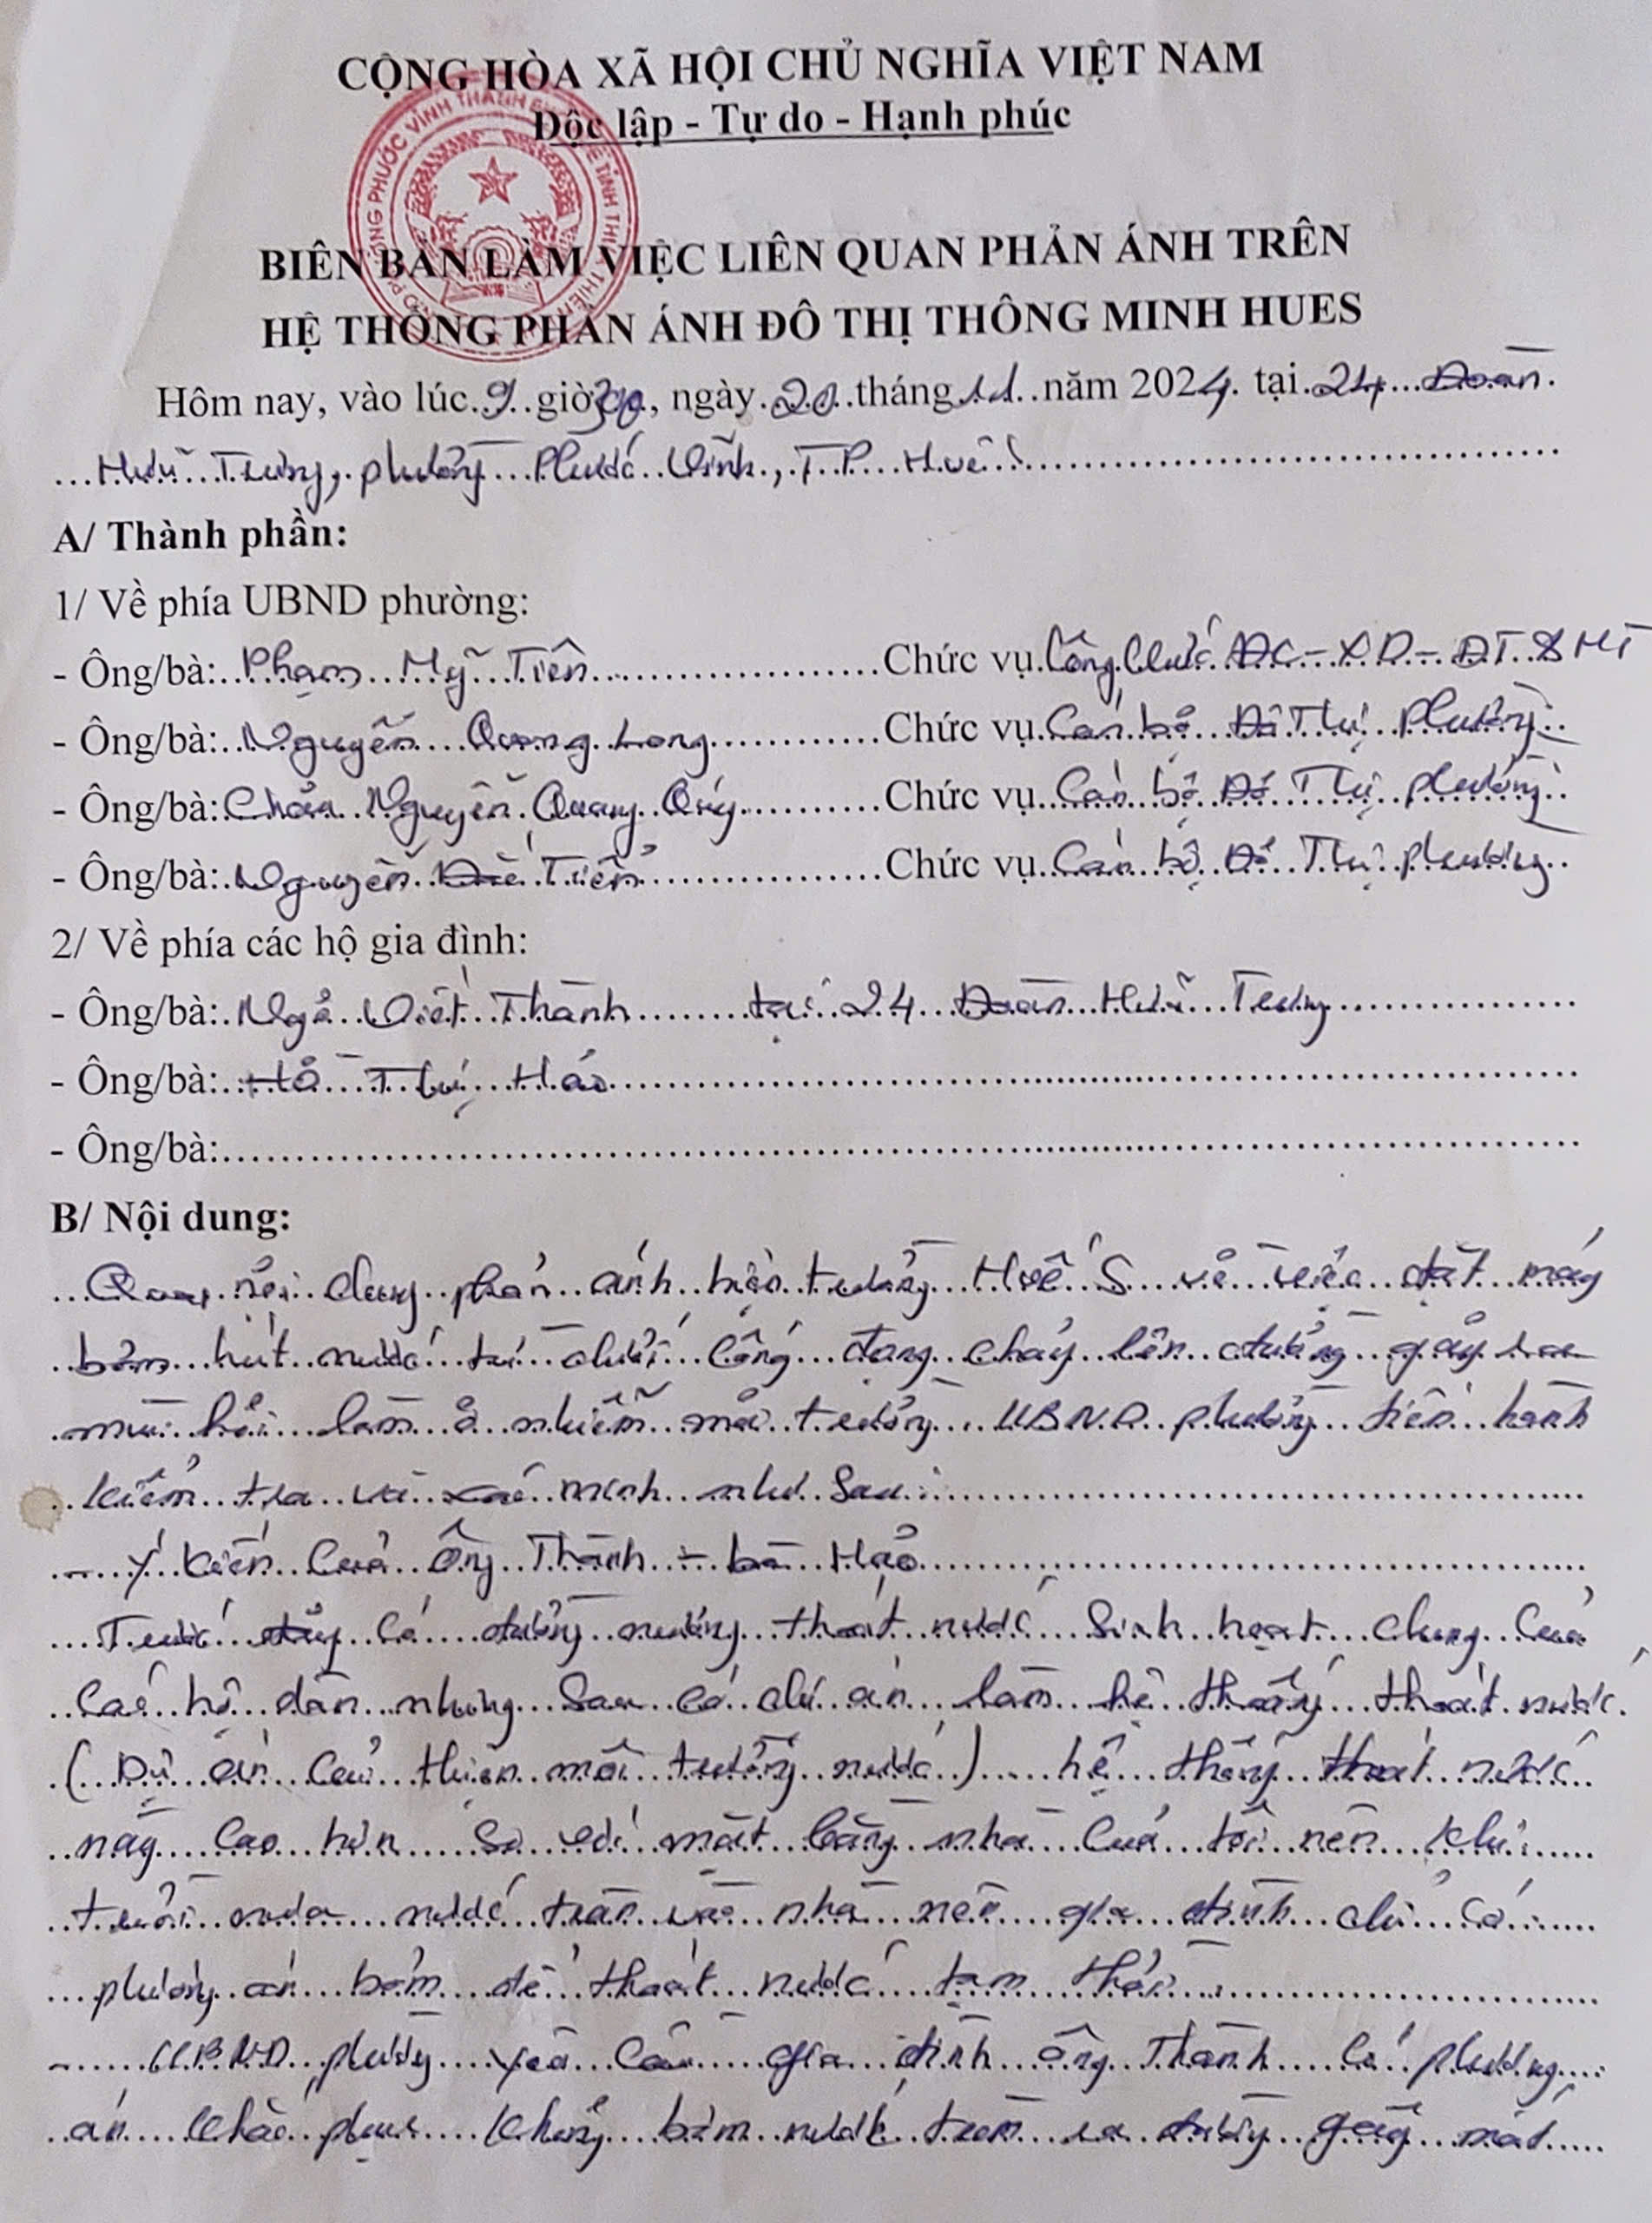 CỘNG HÒA XÃ HỘI CHỦ NGHĨA VIỆT NAM
Độc lập - Tự do - Hạnh phúc
BIÊN BẢN LÀM VIỆC LIÊN QUAN PHẢN ÁNH TRÊN
HỆ THỐNG PHẢN ÁNH ĐÔ THỊ THÔNG MINH HUES
Hôm nay, vào lúc 9 giờ 30, ngày 20 tháng 11 năm 2024 tại 24 Đoàn
Hữu Trưng, phường Phước Vĩnh, TP Huế
A/ Thành phần:
1/ Về phía UBND phường:
- Ông/bà: Phạm Mỹ Tiên Chức vụ Công chức ĐC-XD-ĐT&MT
- Ông/bà: Nguyễn Quang Long Chức vụ Cán bộ Đô Thị Phường
- Ông/bà: Nguyễn Quang Quý Chức vụ Cán bộ Đô Thị phường
- Ông/bà: Nguyễn Tiến Chức vụ Cán bộ Đô Thị phường
2/ Về phía các hộ gia đình:
- Ông/bà: Ngô Viết Thành tại 24 Đoàn Hữu Trưng
- Ông/bà: Hồ Thị Hảo
- Ông/bà:
B/ Nội dung:
Qua nội dung phản ánh hiện trường Huế S về việc đặt máy
bơm hút nước từ dưới cống đang chảy lên đường gây ra
mùi hôi làm ô nhiễm môi trường. UBND phường tiến hành
kiểm tra và xác minh như sau:
Ý kiến của ông Thành - bà Hảo
Trước đây có đường mương thoát nước sinh hoạt chung của
các hộ dân nhưng sau có dự án làm hệ thống thoát nước
(Dự án cải thiện môi trường nước) hệ thống thoát nước
này cao hơn so với mặt bằng nhà của tôi nên khi
trời mưa nước tràn vào nhà nên gia đình chỉ có
phương án bơm để thoát nước tạm thời.
- UBND phường yêu cầu gia đình ông Thành có phương
án khắc phục không bơm nước tràn ra đường gây mất